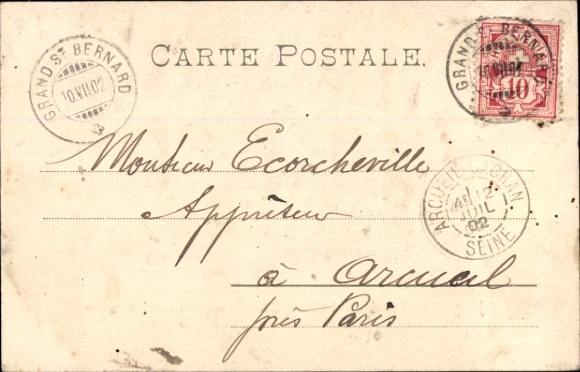 GRAND ST BERNARD
10.VII.02
CARTE POSTALE.
GRAND ST BERNARD
10.VII.02
10
Monsieur Ecorcheville
Apprêteur
à Arcueil
près Paris
ARCUEIL-CACHAN
12
JUIL
02
SEINE